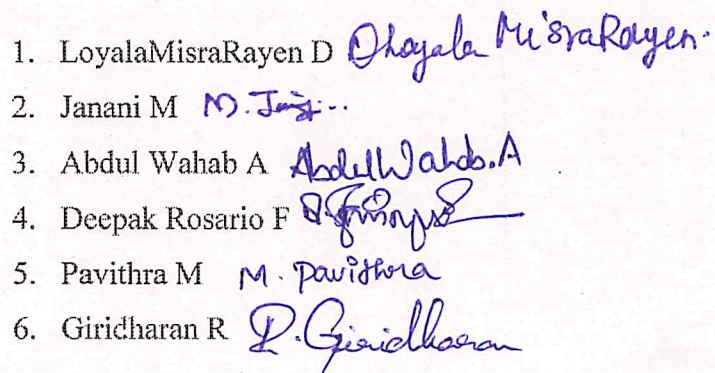 1. LoyalaMisraRayen D Dhoyala MisraRayen.
2. Janani M M.
3. Abdul Wahab A Abdul Wahab.A
4. Deepak Rosario F
5. Pavithra M M. Pavithra
6. Giridharan R R. Giridharan